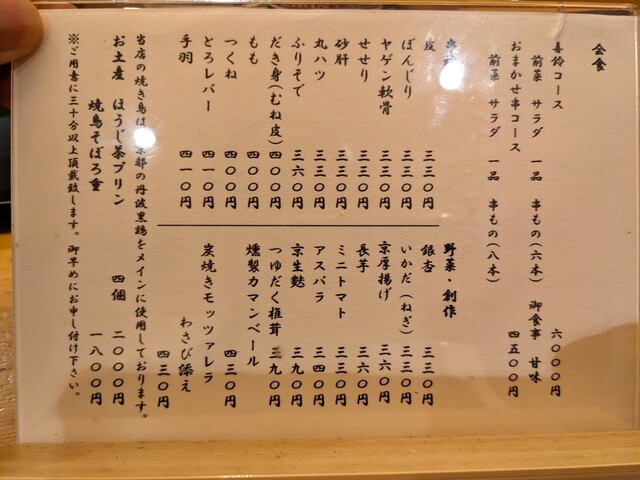 会食
喜鈴コース 六〇〇〇円
前菜 サラダ 一品 串もの(六本) 御食事 甘味
おまかせ串コース 四五〇〇円
前菜 サラダ 一品 串もの(八本)
皮 三三〇円
ぼんじり 三三〇円
ヤゲン軟骨 三三〇円
せせり 三三〇円
砂肝 三三〇円
丸ハツ 三三〇円
ふりそで 三六〇円
だき身(むね皮) 四〇〇円
もも 四〇〇円
つくね 四〇〇円
とろレバー 四一〇円
手羽 四一〇円
野菜・創作
銀杏 三三〇円
いかだ(ねぎ) 三三〇円
京厚揚げ 三六〇円
長芋 三六〇円
ミニトマト 三三〇円
アスパラ 三四〇円
京生麩 三九〇円
つゆだく椎茸 三九〇円
燻製カマンベール 四三〇円
炭焼きモッツァレラ
わさび添え 四三〇円
当店の焼き鳥は 都の丹波黒鶏をメインに使用しております。
お土産 ほうじ茶プリン 四個 二〇〇〇円
焼鳥そぼろ重 一八〇〇円
※ご用意に三十分以上頂戴致します。御早めにお申し付け下さい。